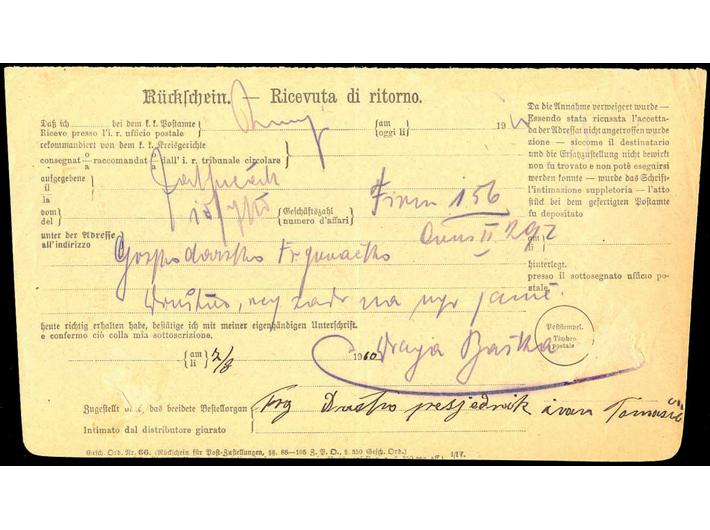 Rückschein. — Ricevuta di ritorno.
Daß ich bei dem k. k. Postamte
Ricevo presso l'i. r. ufficio postale
am
oggi li
19
rekommandiert von dem k. k. Kreisgerichte
consegnat o/a raccomandat o/a dall'i. r. tribunale circolare
aufgegebene
il/la
vom
del
Geschäftszahl
numero d'affari
Firm 156
II 292
unter der Adresse
all'indirizzo
Gospodarsko Trgovačko
Društvo, na
heute richtig erhalten habe, bestätige ich mit meiner eigenhändigen Unterschrift.
e confermo ciò colla mia sottoscrizione.
am
li
7/8
19
Draga Baška
Zugestellt das beeidete Bestellorgan
Intimato dal distributore giurato
Trg Društvo presjednik ivan Tomašić
Gesch. Ord. Nr. 66. (Rückschein für Post-Zustellungen, §§. 88—106 Z. P. O., § 350 Gesch. Ord.)
Da die Annahme verweigert wurde —
Essendo stata ricusata l'accetta-
da der Adressat nicht angetroffen wurde
zione — siccome il destinatario
und die Ersatzzustellung nicht bewirkt
non fu trovato e non potè eseguirsi
werden konnte — wurde das Schrift-
l'intimazione suppletoria — l'atto
stück bei dem gefertigten Postamte
fu depositato
am
li
hinterlegt.
presso il sottosegnato ufficio po-
stale.
Poststempel.
Timbro
postale